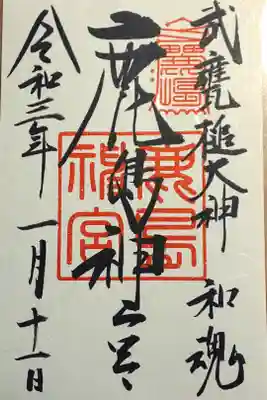 武甕槌大神 和魂
鹿嶋神宮
鹿島神宮
令和三年 一月十一日